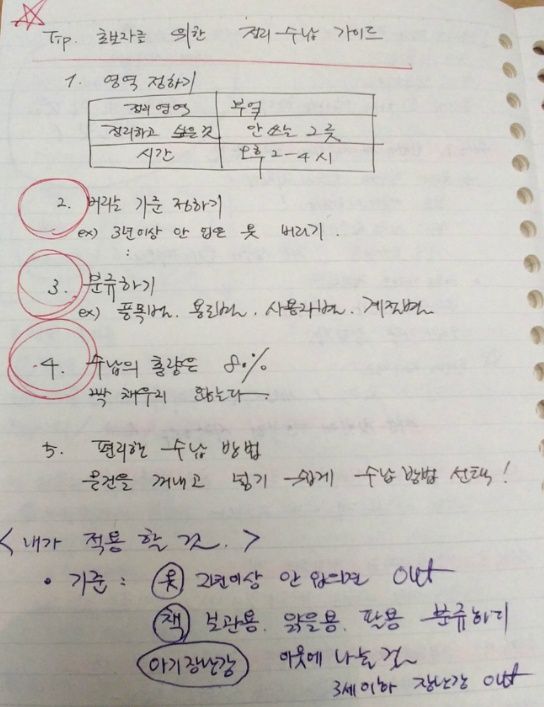 Tip. 초보자를 위한 정리-수납 가이드
1. 영역 정하기
정리 영역 부엌
정리하고 싶은 것 안 쓰는 그릇
시간 오후 2-4시
2. 버리는 기준 정하기
ex) 3년이상 안 입은 옷 버리기.
:
3. 분류하기
ex) 품목별. 용도별. 사용자별. 계절별
4. 수납의 총량은 80%
꽉 채우지 않는다
5. 편리한 수납 방법
물건을 꺼내고 넣기 쉽게 수납 방법 선택!
<내가 적용 할 것.>
• 기준 : 옷 2년이상 안 입으면 out
책 보관용. 읽을용. 팔용 분류하기
아기장난감 아웃에 나눌 걸
3세이하 장난감 out